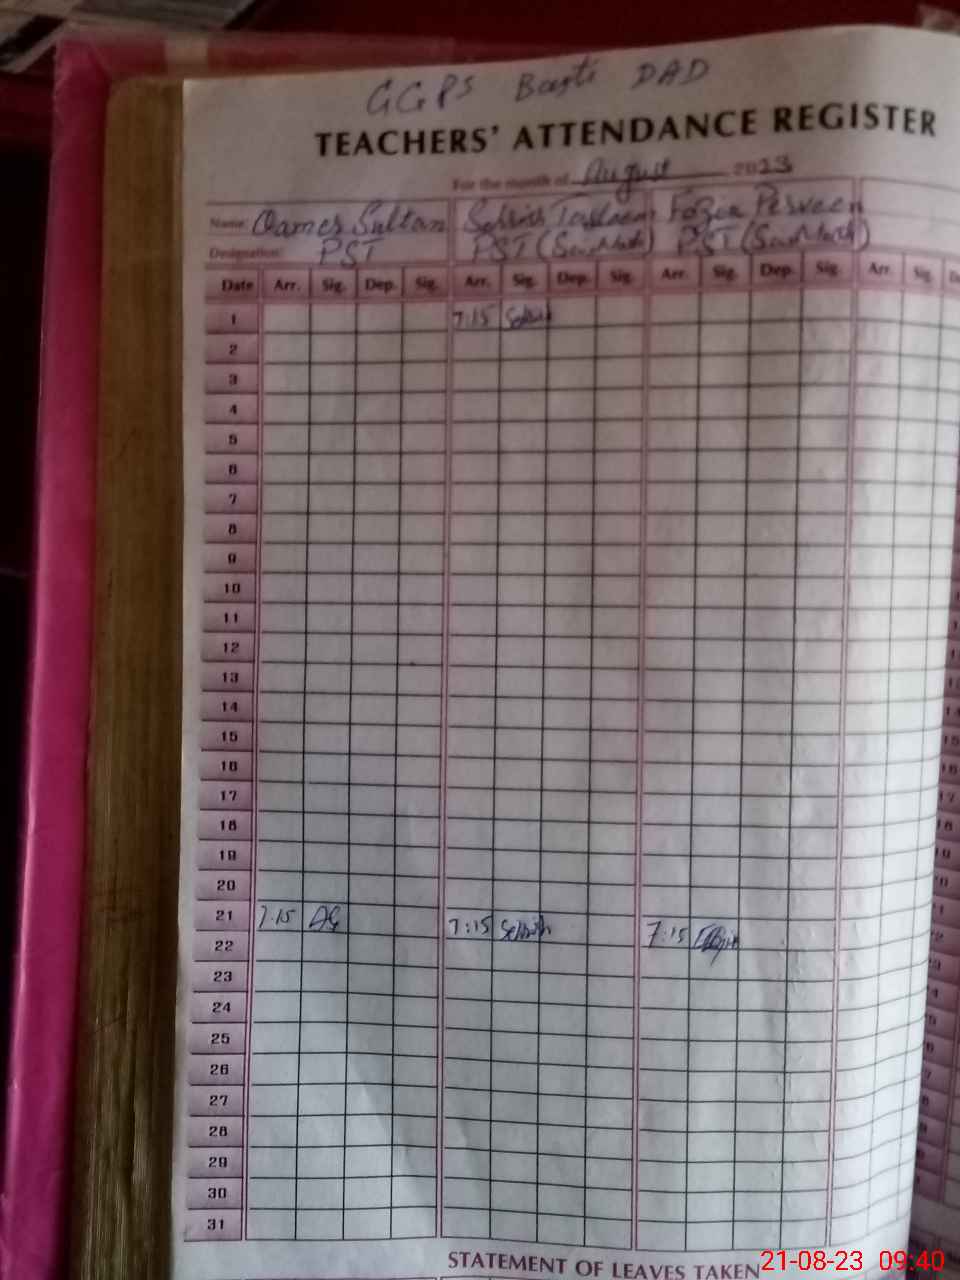 GGPS Basti DAD
TEACHERS' ATTENDANCE REGISTER
For the month of August 2023
Name: Qamer Sultan Sehrish Tasleem Fozia Perveen
Designation: PST PST (Sci-Math) PST (Sci-Math)
Date Arr. Sig. Dep. Sig. Arr. Sig. Dep. Sig. Arr. Sig. Dep. Sig. Arr. Sig.
1 7:15 Sehrish
2
3
4
5
6
7
8
9
10
11
12
13
14
15
16
17
18
19
20
21 7:15 7:15 Sehrish 7:15
22
23
24
25
26
27
28
29
30
31
STATEMENT OF LEAVES TAKEN
21-08-23 09:40